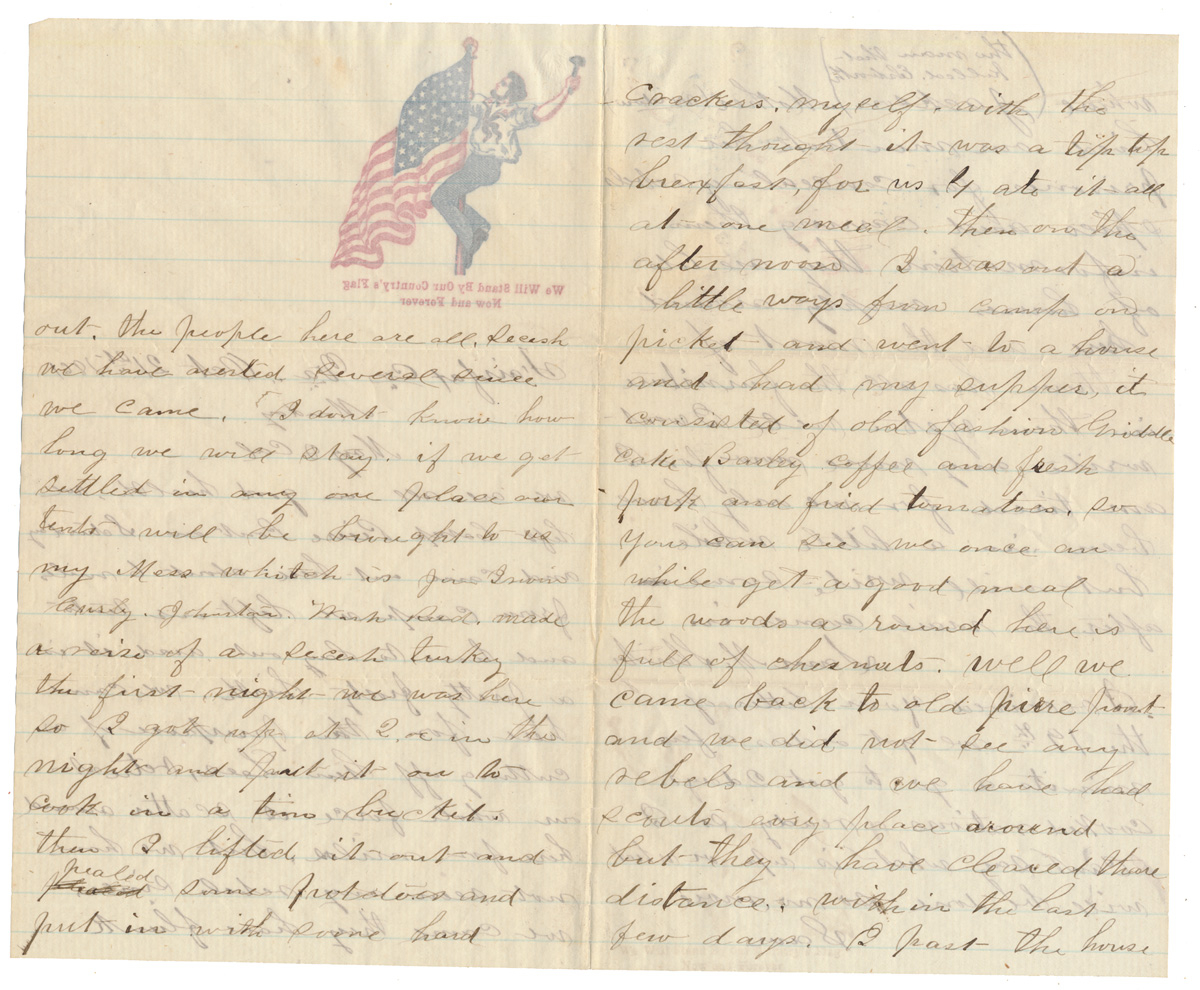 We Will Stand By Our Country's Flag
Now and Forever
out. the people here are all, Secesh
we have arested several since
we came. I dont know how
long we will stay. if we get
settled in any one place our
tents will be brought to us
my Mess whitch is Irwin
Johnston. Wash Reed. made
a reise of a secesh turkey
the first night we was here
so I got up at 2,oc in the
night and put it on to
cook in a tinn bucket.
then I lifted it out and
pealed some potatoes and
put in with some hard
crackers. myself. with the
rest thought it was a tip top
breakfast, for us 4 ate it all
at one meal. then on the
after noon I was out a
little ways from camp on
picket and went to a house
and had my supper, it
consisted of old fashion Griddle
cake Barley coffee and fresh
pork and fried tomatoes. so
you can see we once an
while get a good meal
the woods a round here is
full of chesnuts. well we
came back to old piere pont
and we did not see any
rebels and we have had
scouts evry place around
but they have cleared there
distance. within the last
few days. I past the house